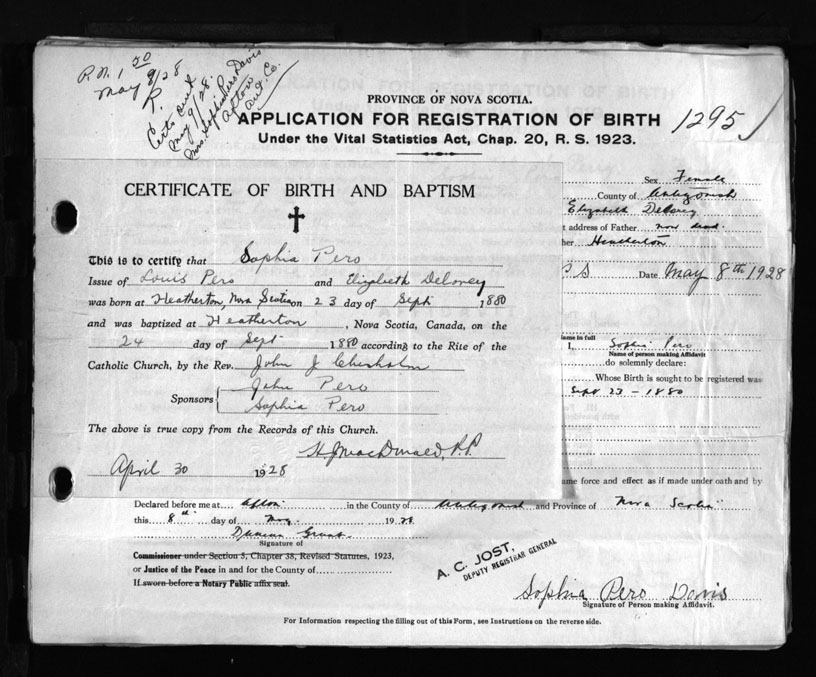 P.N. 1 50
May 8/28
R.
Certs and
May 9/28.
Mrs. Sophia Pero Davis
Afton
Ant. Co.
PROVINCE OF NOVA SCOTIA.
APPLICATION FOR REGISTRATION OF BIRTH
1295
Under the Vital Statistics Act, Chap. 20, R. S. 1923.
CERTIFICATE OF BIRTH AND BAPTISM
This is to certify that Sophia Pero
Issue of Louis Pero and Elizabeth Deloney
was born at Heatherton, Nova Scotia on 23 day of Sept 1880
and was baptized at Heatherton, Nova Scotia, Canada, on the
24 day of Sept 1880 according to the Rite of the
Catholic Church, by the Rev. John J Chisholm
Sponsors John Pero
Sophia Pero
The above is true copy from the Records of this Church.
H. J. MacDonald, P.P.
April 30 1928
Sex Female
County of Antigonish
Elizabeth Deloney
t address of Father now dead.
her Heatherton
S Date May 8th 1928
ame in full
I, Sophia Pero
Name of person making Affidavit
do solemnly declare:
Whose Birth is sought to be registered was
Sept 23 - 1880
ame force and effect as if made under oath and by
Declared before me at Afton in the County of Antigonish and Province of Nova Scotia
this 8th day of May 1928
Duncan Grant
Signature of
Commissioner under Section 3, Chapter 38, Revised Statutes, 1923,
or Justice of the Peace in and for the County of
If sworn before a Notary Public affix seal.
A. C. JOST,
DEPUTY REGISTRAR GENERAL
Sophia Pero Davis
Signature of Person making Affidavit.
For Information respecting the filling out of this Form, see Instructions on the reverse side.